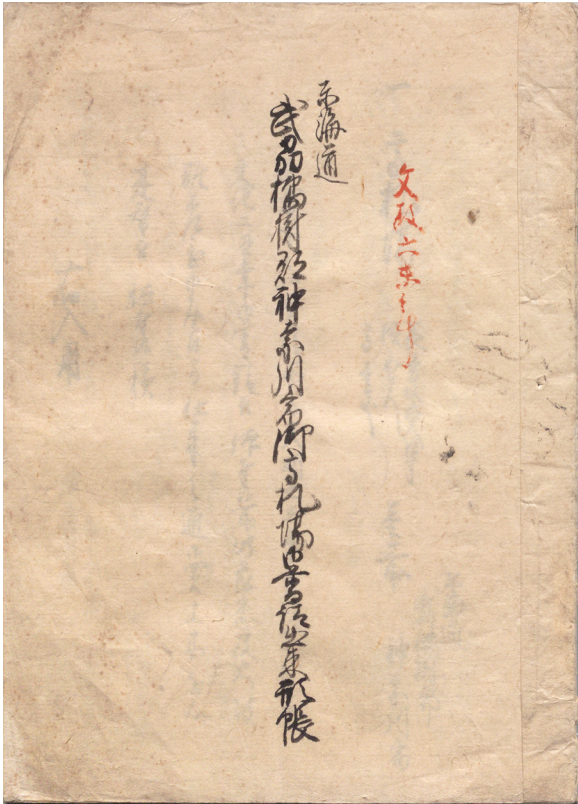 文政六未年
東海道
武州橘樹郡神奈川宿御高札場御普請出来形帳